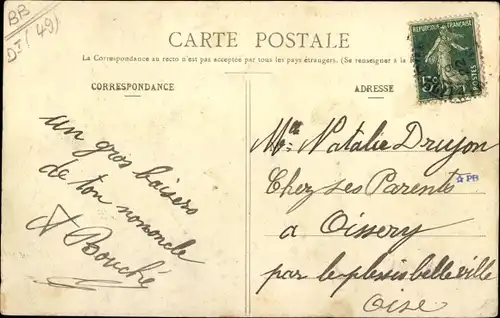 BB
DJ (49)
CARTE POSTALE
La Correspondance au recto n'est pas acceptée par tous les pays étrangers. (Se renseigner à la
CORRESPONDANCE
ADRESSE
REPUBLIQUE FRANÇAISE
5c
un gros baisers
de ton
A Bouché
Mlle Natalie Druyon
Chez ses Parents
PB
a Oissery
par le plessis belleville
Oise